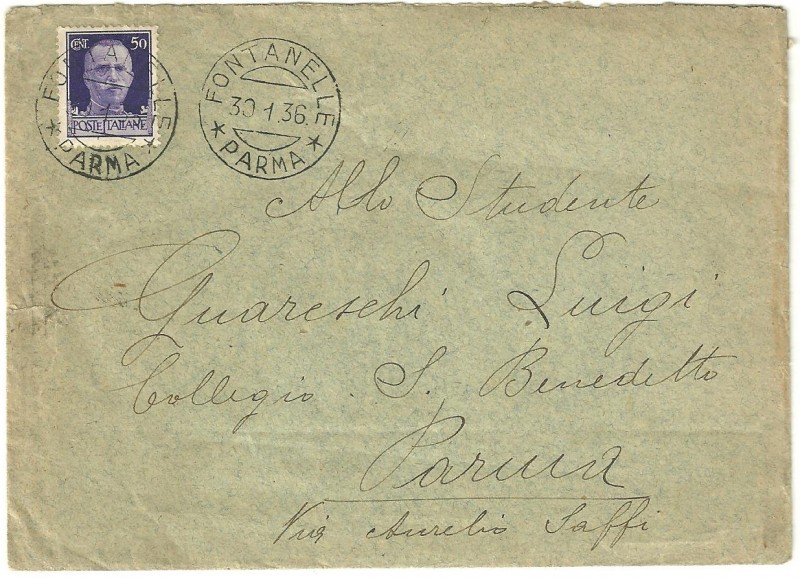 CENT. 50
POSTE ITALIANE
FONTANELLE
PARMA
FONTANELLE
30.1.36.
PARMA
Allo Studente
Guareschi Luigi
Collegio S. Benedetto
Parma
Via Aurelio Saffi